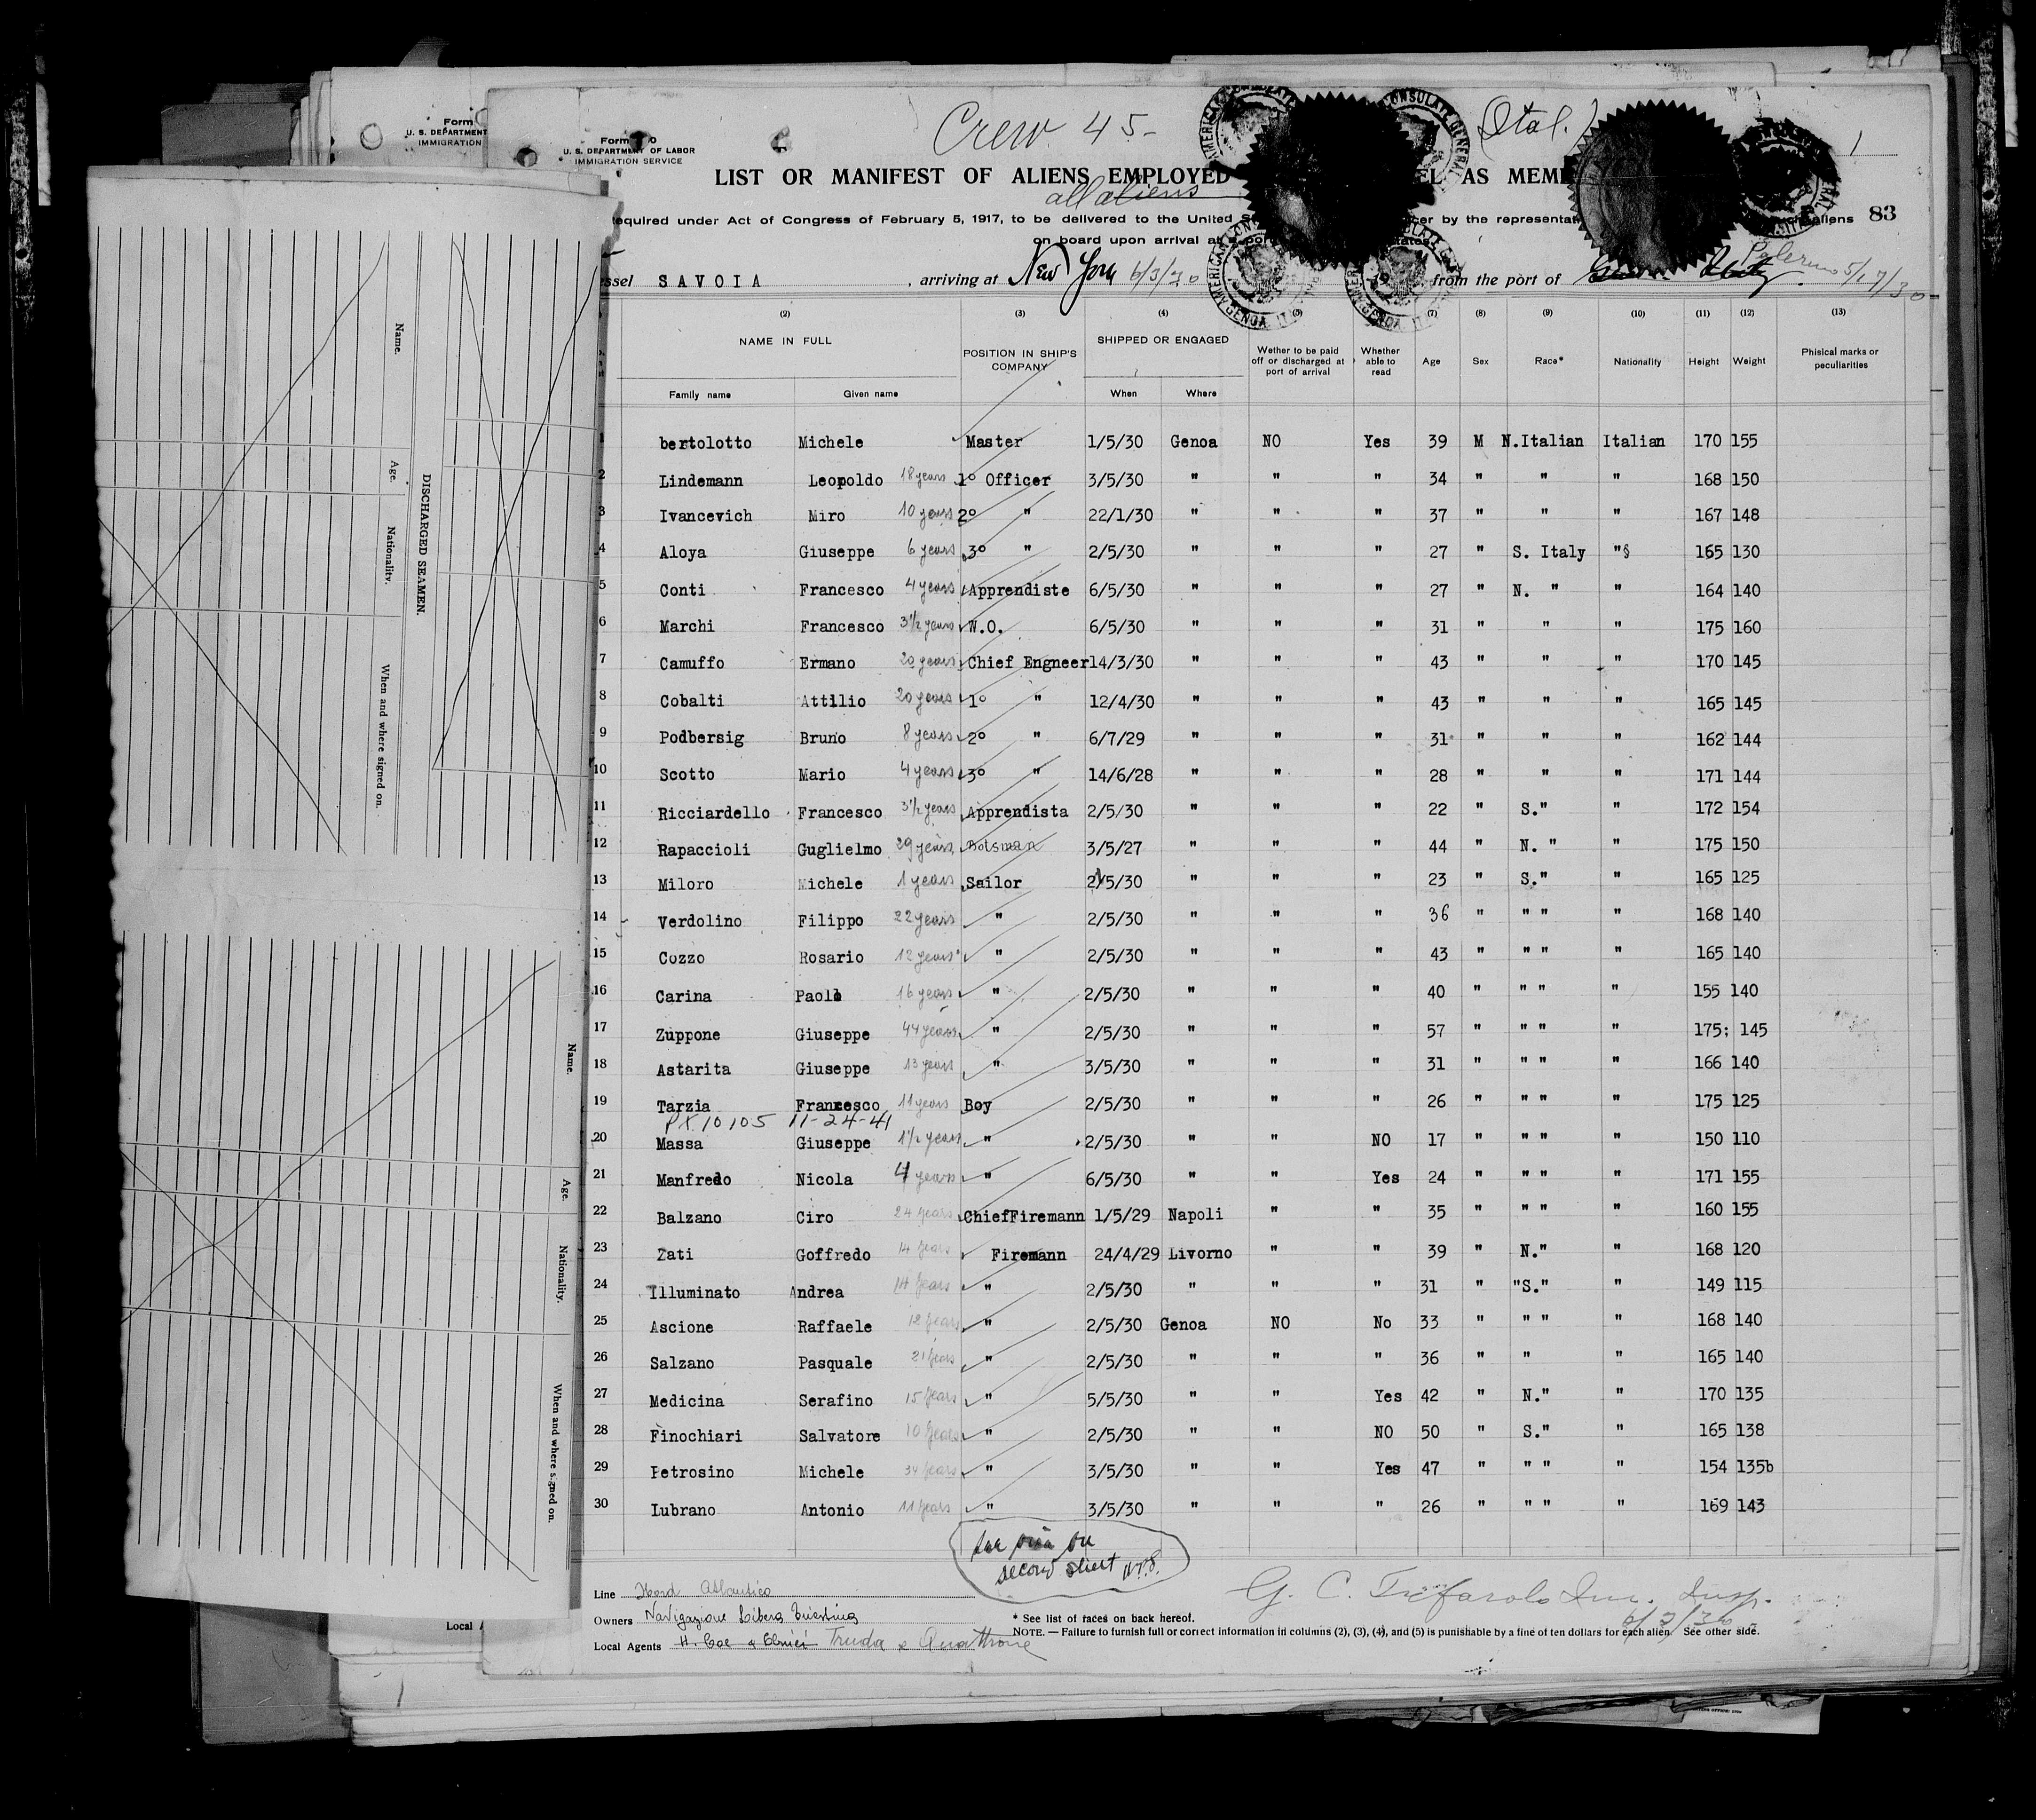 Form
U. S. DEPARTMENT
IMMIGRATION
U. S. DEPARTMENT OF LABOR
IMMIGRATION SERVICE
Crew 45-
(Ital.)
1
LIST OR MANIFEST OF ALIENS EMPLOYED AS
all aliens
equired under Act of Congress of February 5, 1917, to be delivered to the United by the aliens 83
on board upon arrival at
ssel SAVOIA , arriving at New York 6/3/30 from the port of Palermo 5/17/30
(2) (3) (4) (5) (7) (8) (9) (10) (11) (12) (13)
NAME IN FULL POSITION IN SHIP'S COMPANY SHIPPED OR ENGAGED Wether to be paid off or discharged at port of arrival Whether able to read Age Sex Race* Nationality Height Weight Phisical marks or peculiarities
Family name Given name When Where
1 bertolotto Michele Master 1/5/30 Genoa NO Yes 39 M N.Italian Italian 170 155
2 Lindemann Leopoldo 18 years 1° Officer 3/5/30 " " " 34 " " " 168 150
3 Ivancevich Miro 10 years 2° " 22/1/30 " " " 37 " " " 167 148
4 Aloya Giuseppe 6 years 3° " 2/5/30 " " " 27 " S. Italy "§ 165 130
5 Conti Francesco 4 years Apprendiste 6/5/30 " " " 27 " N. " " 164 140
6 Marchi Francesco 3½ years W.O. 6/5/30 " " " 31 " " " 175 160
7 Camuffo Ermano 20 years Chief Engneer 14/3/30 " " " 43 " " " 170 145
8 Cobalti Attilio 20 years 1° " 12/4/30 " " " 43 " " " 165 145
9 Podbersig Bruno 8 years 2° " 6/7/29 " " " 31 " " " 162 144
10 Scotto Mario 4 years 3° " 14/6/28 " " " 28 " " " 171 144
11 Ricciardello Francesco 3½ years Apprendista 2/5/30 " " " 22 " S." " 172 154
12 Rapaccioli Guglielmo 29 years Botsman 3/5/27 " " " 44 " N. " " 175 150
13 Miloro Michele 1 years Sailor 2/5/30 " " " 23 " S." " 165 125
14 Verdolino Filippo 22 years " 2/5/30 " " " 36 " " " " 168 140
15 Cozzo Rosario 12 years " 2/5/30 " " " 43 " " " " 165 140
16 Carina Paolo 16 years " 2/5/30 " " " 40 " " " " 155 140
17 Zuppone Giuseppe 44 years " 2/5/30 " " " 57 " " " " 175; 145
18 Astarita Giuseppe 13 years " 3/5/30 " " " 31 " " " " 166 140
19 Tarzia Francesco 11 years Boy 2/5/30 " " " 26 " " " " 175 125
PX 10105 11-24-41
20 Massa Giuseppe 1½ years " 2/5/30 " " NO 17 " " " " 150 110
21 Manfredo Nicola 4 years " 6/5/30 " " Yes 24 " " " " 171 155
22 Balzano Ciro 24 years ChiefFiremann 1/5/29 Napoli " " 35 " " " " 160 155
23 Zati Goffredo 14 years Firemann 24/4/29 Livorno " " 39 " N." " 168 120
24 Illuminato Andrea 14 years " 2/5/30 " " " 31 " "S." " 149 115
25 Ascione Raffaele 12 years " 2/5/30 Genoa NO No 33 " " " " 168 140
26 Salzano Pasquale 21 years " 2/5/30 " " " 36 " " " 165 140
27 Medicina Serafino 15 years " 5/5/30 " " Yes 42 " N." " 170 135
28 Finochiari Salvatore 10 years " 2/5/30 " " NO 50 " S." " 165 138
29 Petrosino Michele 34 years " 3/5/30 " " Yes 47 " " " " 154 135b
30 Lubrano Antonio 11 years " 3/5/30 " " " 26 " " " " 169 143
see visa on
second sheet
Line Nord Atlantico
Owners Navigazione Libera Triestina
Local Agents Truda & Quattrone
* See list of races on back hereof.
NOTE. — Failure to furnish full or correct information in columns (2), (3), (4), and (5) is punishable by a fine of ten dollars for each alien. See other side.
G. C. Insp.
Local A
DISCHARGED SEAMEN.
Name.
Age.
Nationality.
When and where signed on.
Name.
Age.
Nationality.
When and where signed on.
AMERICAN CONSULATE GENERAL
GENOA, ITALY